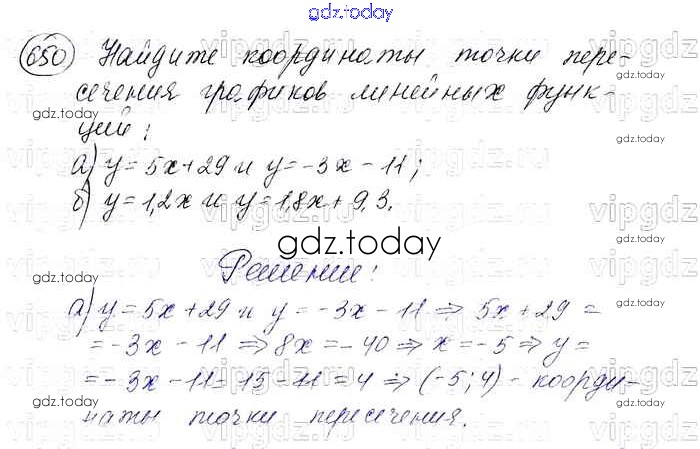 gdz.today
650 Найдите координаты точки пере-
сечения графиков линейных функ-
ций:
а) y = 5x + 29 и y = -3x - 11;
б) y = 1,2x и y = 1,8x + 9,3.
gdz.today
Решение:
а) y = 5x + 29 и y = -3x - 11 ⇒ 5x + 29 =
= -3x - 11 ⇒ 8x = -40 ⇒ x = -5 ⇒ y =
= -3x - 11 = 15 - 11 = 4 ⇒ (-5; 4) - коорди-
наты точки пересечения.